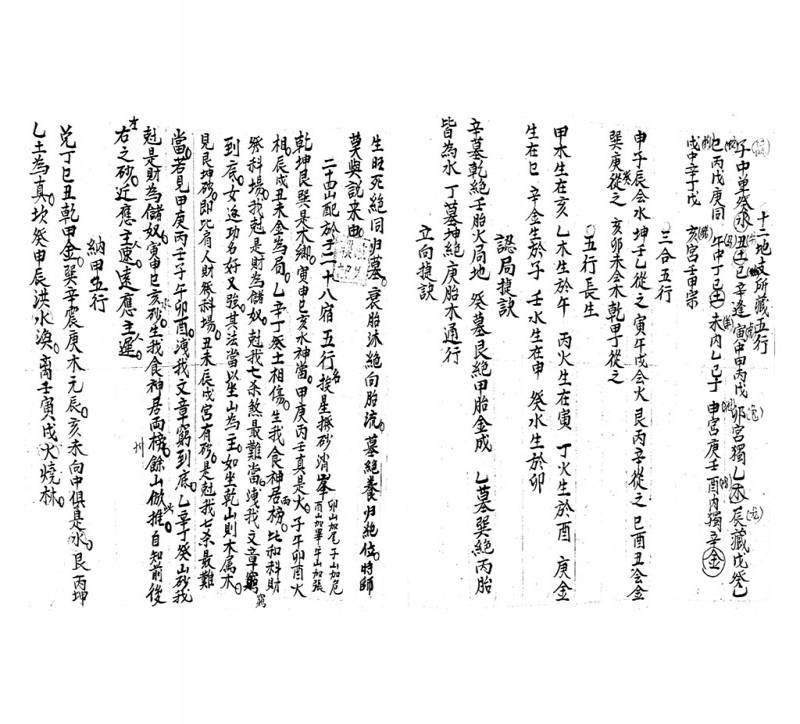 十二地支所藏五行
子中單癸水丑土己辛逢寅中甲丙戊卯宮獨乙木辰藏戊癸乙
巳丙戊庚同午中丁己土未內乙己丁申宮庚壬酉內獨辛金
戌中辛丁戊亥宮壬甲宗
三合五行
申子辰会水坤壬乙從之寅午戌会火艮丙辛從之巳酉丑会金
巽庚癸從之亥卯未会木乾甲丁從之
五行長生
甲木生在亥乙木生於午丙火生在寅丁火生於酉庚金
生在巳辛金生於子壬水生在申癸水生於卯
認局捷訣
辛墓乾絕壬胎火局地癸墓艮絕甲胎金成乙墓巽絕丙胎
皆為水丁墓坤絕庚胎木通行
立向捷訣
生旺死絕同归墓衰胎沐絕向胎流墓絕養归絕位時師
莫與說来由
二十四山配於二十八宿五行按星撥砂消峯
卯山加尾子山加危
酉山加畢午山加張
乾坤艮巽是木鄉寅申巳亥水神當甲庚丙壬真是火子午卯酉火
相辰戌丑未金為局乙辛丁癸土相傷生我食神居兩榜比和科財
發科場我尅是財為儲奴尅我七杀煞最難當洩我文章窮
到底女連功名好又強其法當以坐山為主如坐乾山則木属木
見艮坤砂即比肩人財發科場丑未辰戌宮有砂是尅我七杀最難
當若見甲庚丙壬子午卯酉洩我文章窮到底乙辛丁癸山砂我
尅是財為儲奴寅申巳亥砂生我食神居兩榜餘山倣此推自知前後
左右之砂近應主人遠應主遲
納甲五行
兌丁巳丑乾甲金巽辛震庚木元辰亥未向中俱是水艮丙坤
乙土為真坎癸申辰洪水渙离壬寅戌火燒林